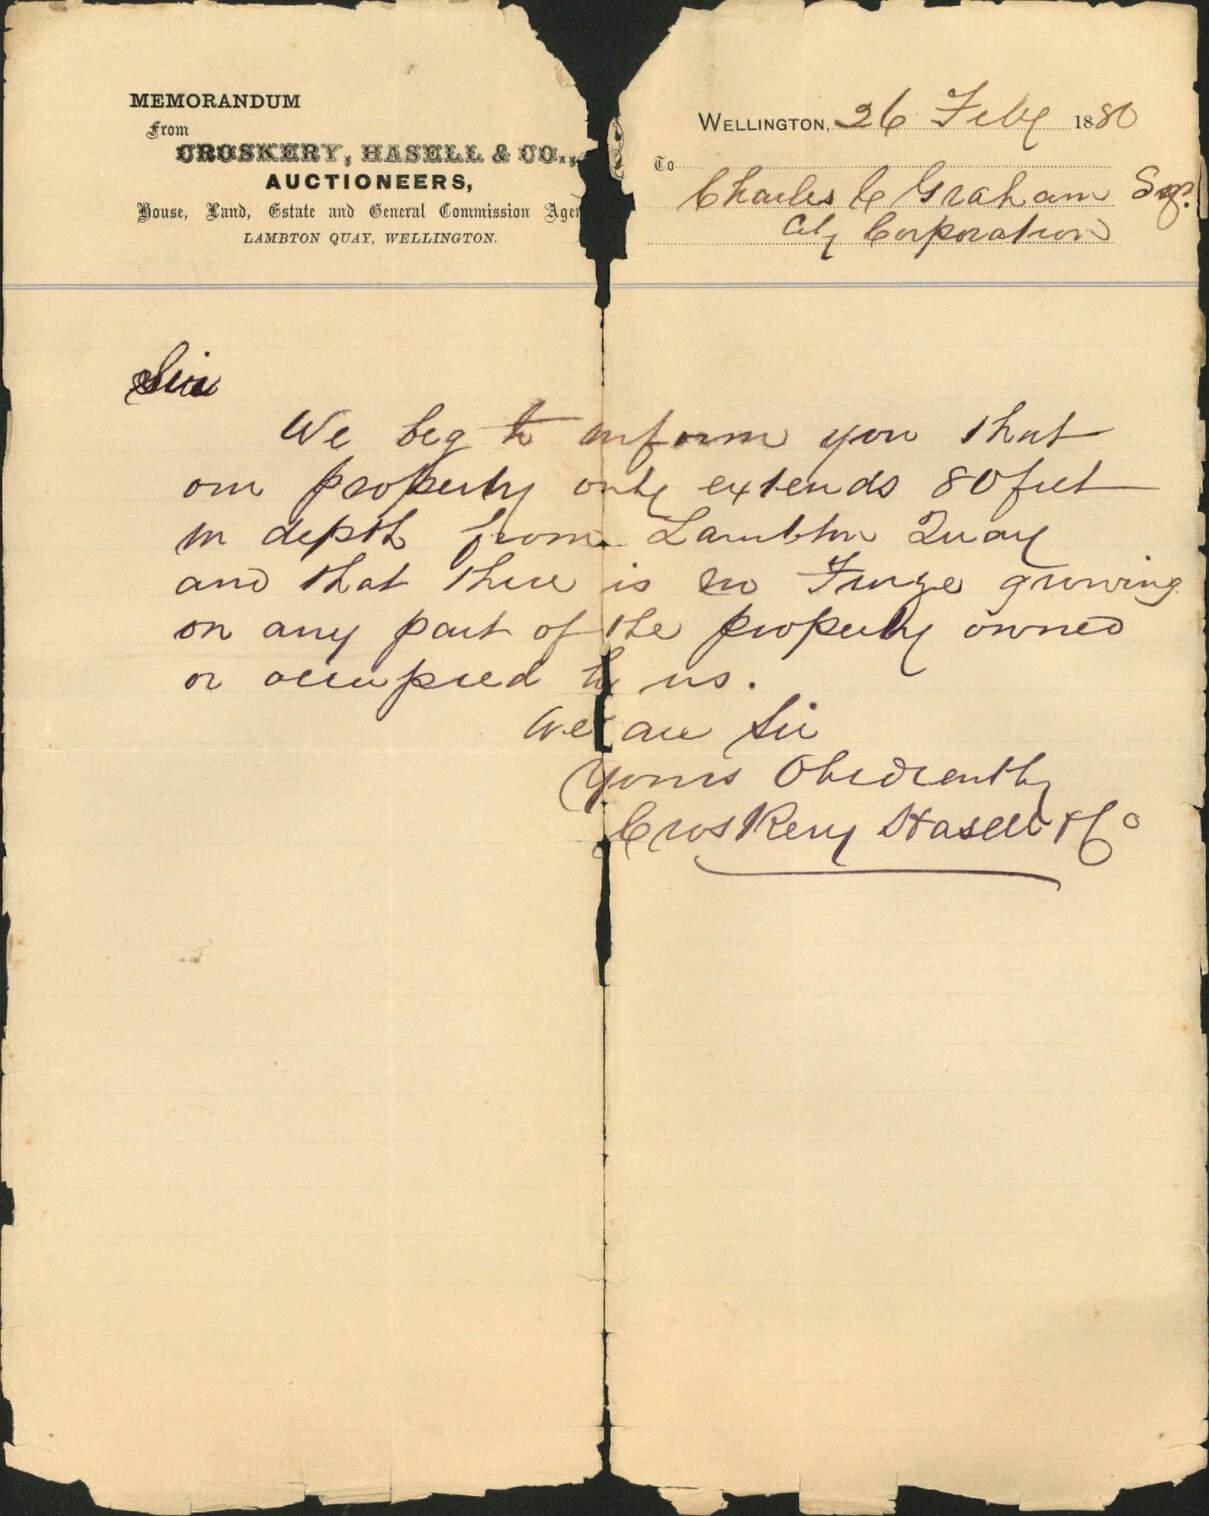 MEMORANDUM
From
CROSKERY, HASELL & CO.,
AUCTIONEERS,
House, Land, Estate and General Commission Agen
LAMBTON QUAY, WELLINGTON.
WELLINGTON, 26 Feby 1880
To
Charles C Graham Esq.
City Corporation
Sir
We beg to inform you that
our property only extends 80 feet
in depth from Lambton Quay
and that there is no Furze growing
on any part of the property owned
or occupied by us.
We are Sir
Yours Obediently
Croskery Hasell & Co